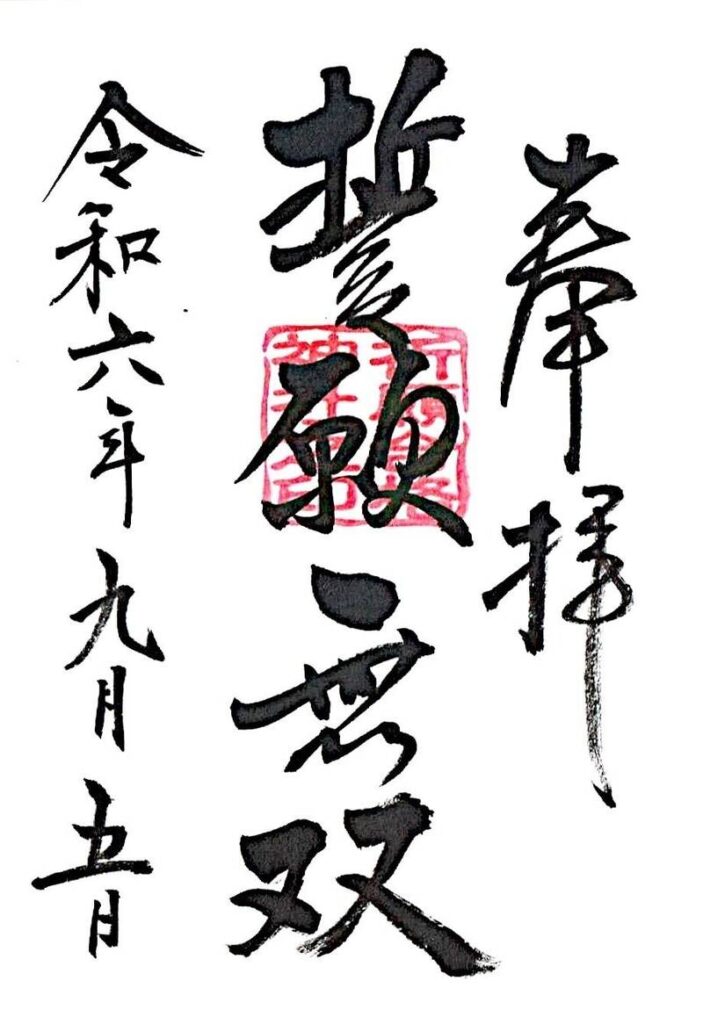 奉拝
誓願無双
令和六年九月五日